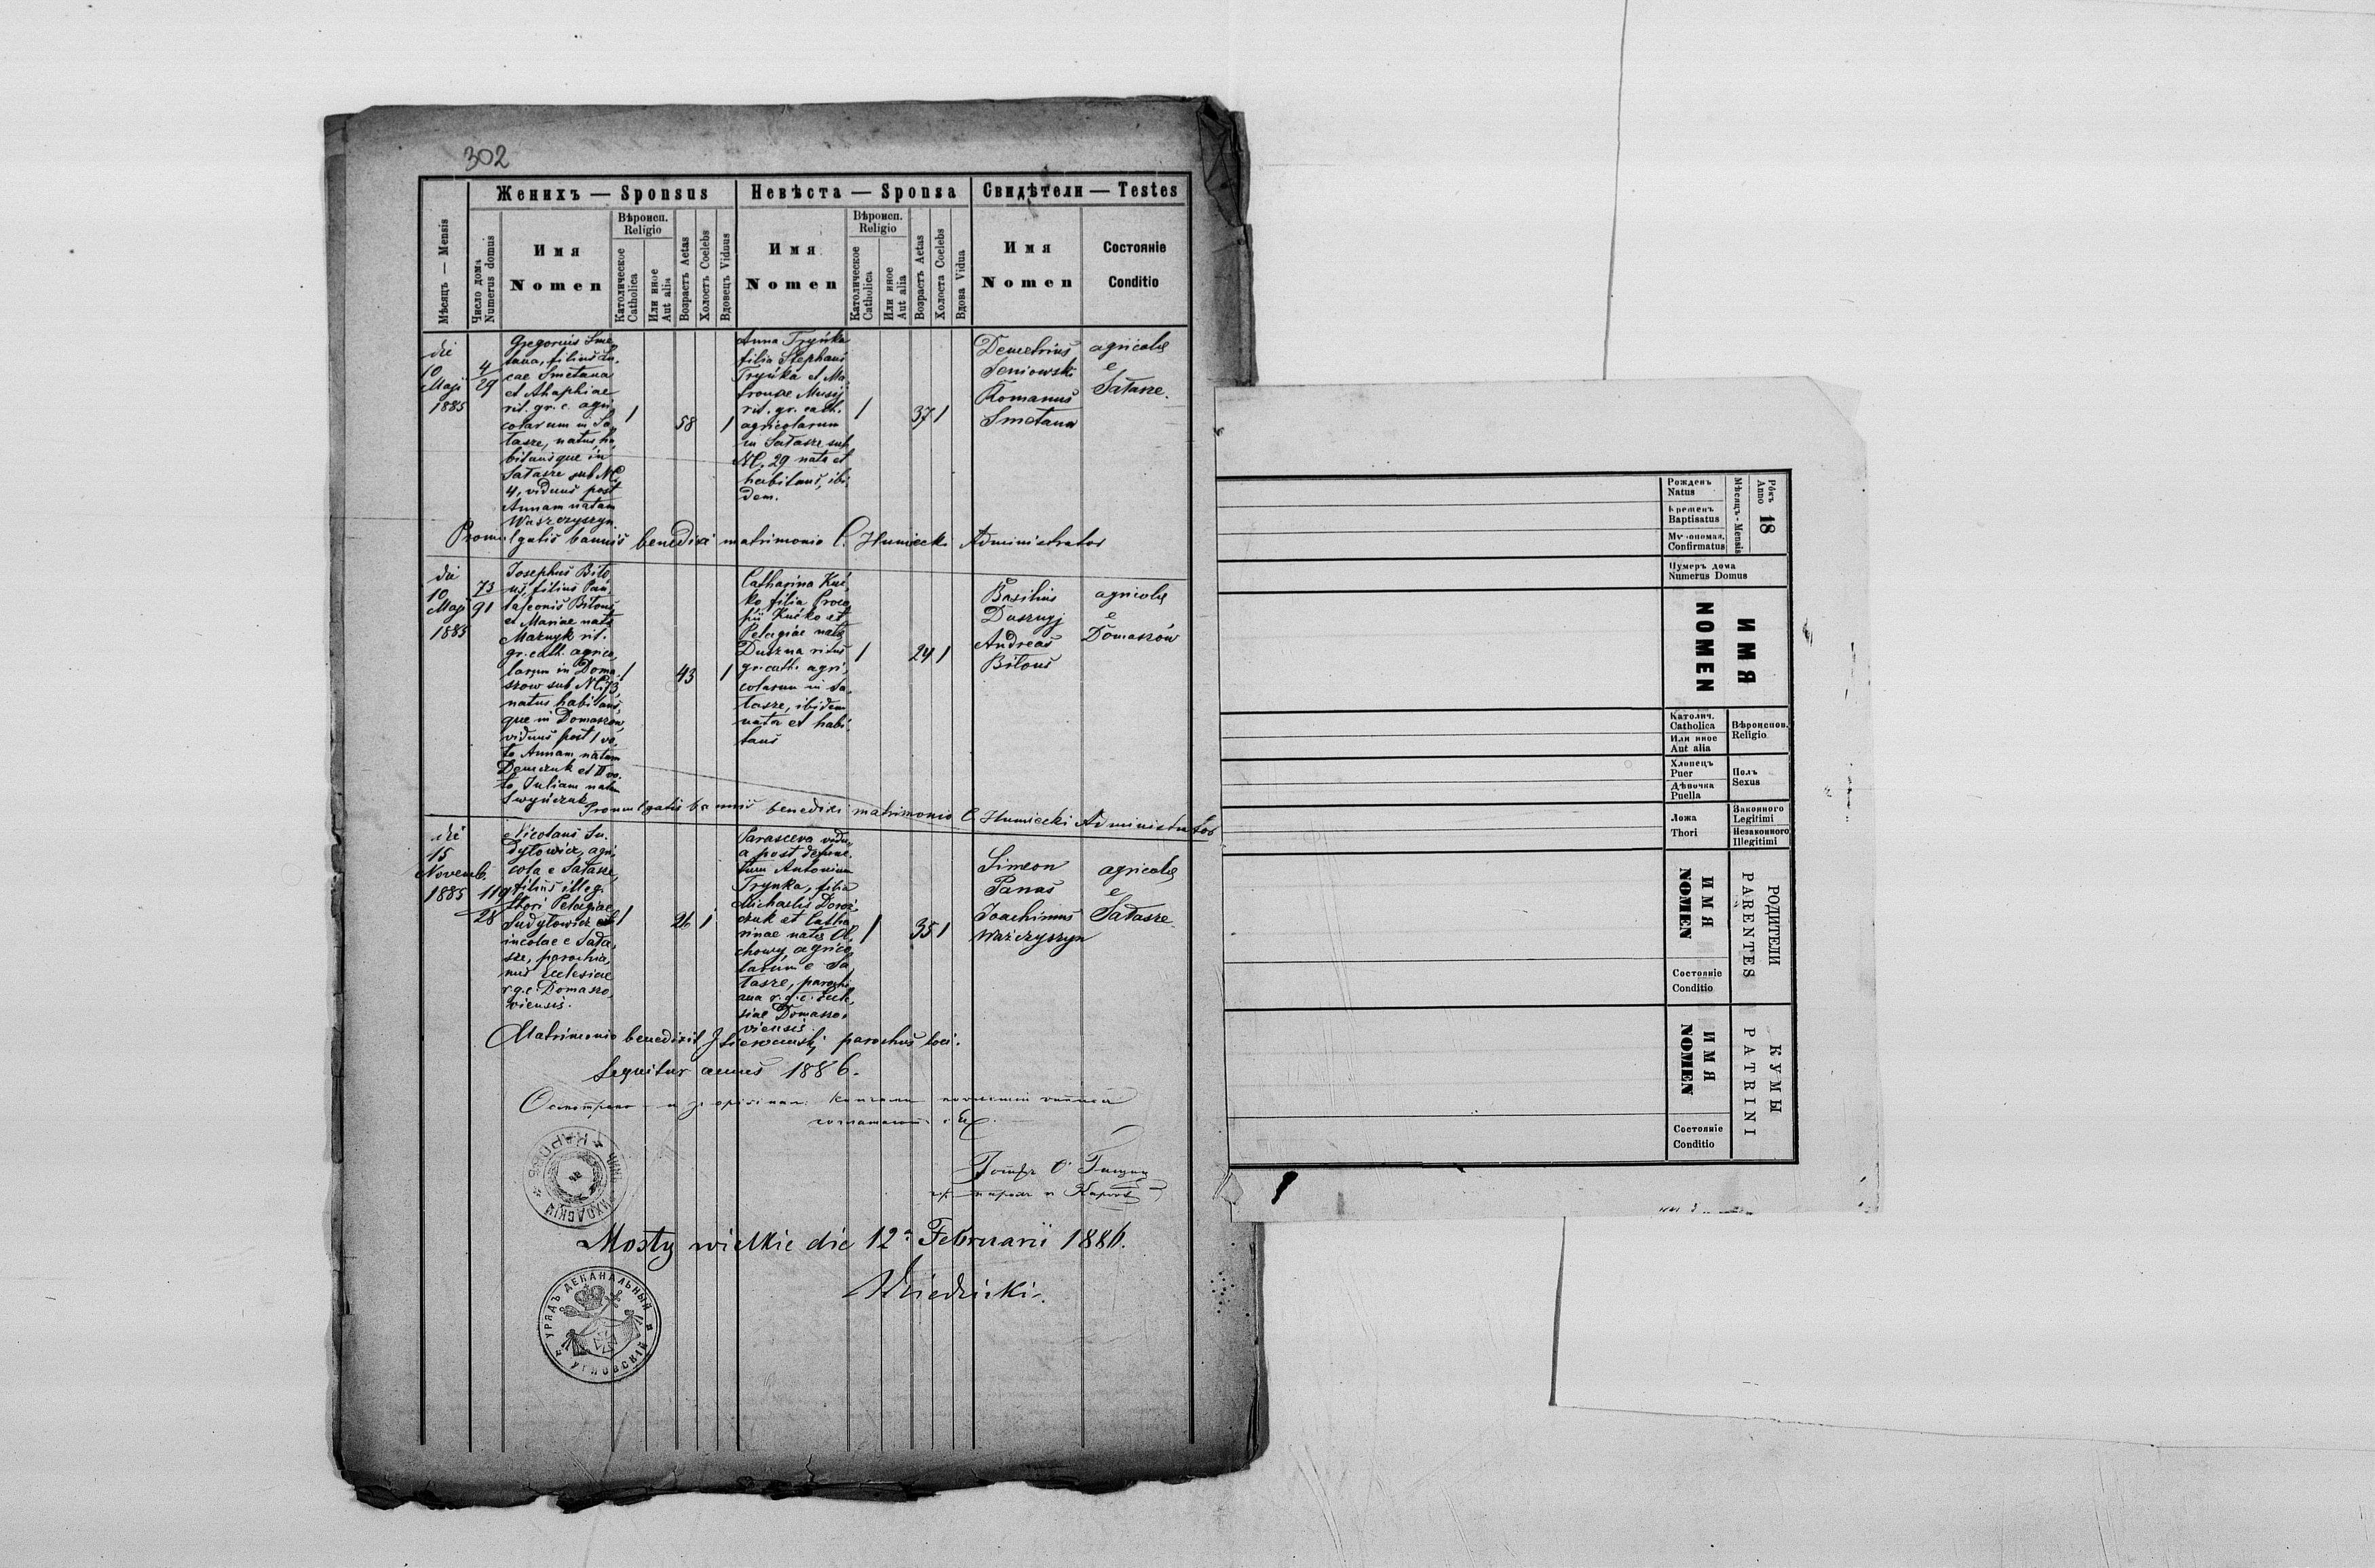 302
Женихъ — Sponsus
Невѣста — Sponsa
Свидѣтели — Testes
Мѣсяцъ — Mensis
Число дома
Numerus domus
Имя
Nomen
Вѣроисп.
Religio
Католическое
Catholica
Или иное
Aut alia
Возрастъ Aetas
Холостъ Coelebs
Вдовецъ Viduus
Имя
Nomen
Вѣроисп.
Religio
Католическое
Catholica
Или иное
Aut alia
Возрастъ Aetas
Холоста Coelebs
Вдова Vidua
Имя
Nomen
Состояніе
Conditio
die
10
Maji
1885
4
29
Gregorius Sme
tana, filius Lu
cae Smetana
et Ahaphiae
rit. gr. c. agri
colarum in Sa
łasze, natus ha
bitansque in
Sałasze sub NC
4, viduus post
Annam natam
Waszczyszyn
1
58
1
Anna Tryńka
filia Stephani
Tryńka et Ma
tronae Musij
rit. gr. cath.
agricolarum
in Sałasze sub
NC. 29 nata et
habitans, ibi
dem.
1
37 1
Demetrius
Seniowski
Romanus
Smetana
agricolae
e
Sałasze.
Promulgatis bannis benedixi matrimonio C. Humiecki Administrator
die
10
Maji
1885
73
91
Josephus Biło
us, filius Pan
taleonis Biłous
et Mariae nata
Maznyk rit.
gr. cath. agrico
larum in Doma
szow sub NC 73
natus habitans
que in Domaszow,
viduus post I vo
to Annam natam
Demczuk et II vo
to Juliam natam
Swyńczuk
1
43
1
Catharina Kuć
ko filia Proco
pii Kućko et
Pelagiae nata
Duszna ritus
gr. cath. agri
colarum in Sa
łasze, ibidem
nata et habi
tans
1
24 1
Basilius
Dusznyj
Andreas
Biłous
agricolae
e
Domaszów
Promulgatis bannis benedixi matrimonio C. Humiecki Administrator
die
15
Novemb.
1885
119
28
Nicolaus Su
dyłowicz, agri
cola e Sałasze,
filius illeg.
thori Pelagiae
Sudyłowicz
incolae e Sała
sze, parochia
nus Ecclesiae
r.g.c. Domaszo
viensis.
1
26 1
Parasceva vidu
a post defunc
tum Antonium
Trynka, filia
Michaelis Doroż
czuk et Catha
rinae nata Ol
chowy, agrico
larum e Sa
łasze, parochi
ana r.g.c. Eccle
siae Domaszo
viensis
1
35 1
Simeon
Panas
Joachimus
Wařczyszyn
agricolae
e
Sałasze
Matrimonio benedixit J. parochus loci.
Sequitur annus 1886.
Mosty wielkie die 12ª Februarii 1886.
УРЯДЪ ДЕКАНАЛЬНЫЙ
УГНОВСКІЙ
Рокъ 18
Anno
Мѣсяцъ - Mensis
Рожденъ
Natus
Крещенъ
Baptisatus
Мѵропомаз.
Confirmatus
Нумеръ дома
Numerus Domus
ИМЯ
NOMEN
Вѣроиспов.
Religio
Католич.
Catholica
Или иное
Aut alia
Полъ
Sexus
Хлопецъ
Puer
Дѣвочка
Puella
Ложа
Thori
Законного
Legitimi
Незаконного
Illegitimi
РОДИТЕЛИ
PARENTES
ИМЯ
NOMEN
Состояніе
Conditio
КУМЫ
PATRINI
ИМЯ
NOMEN
Состояніе
Conditio